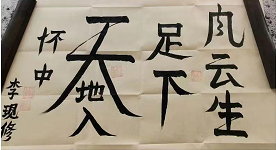 风云生
足下
天地入
怀中
李现修